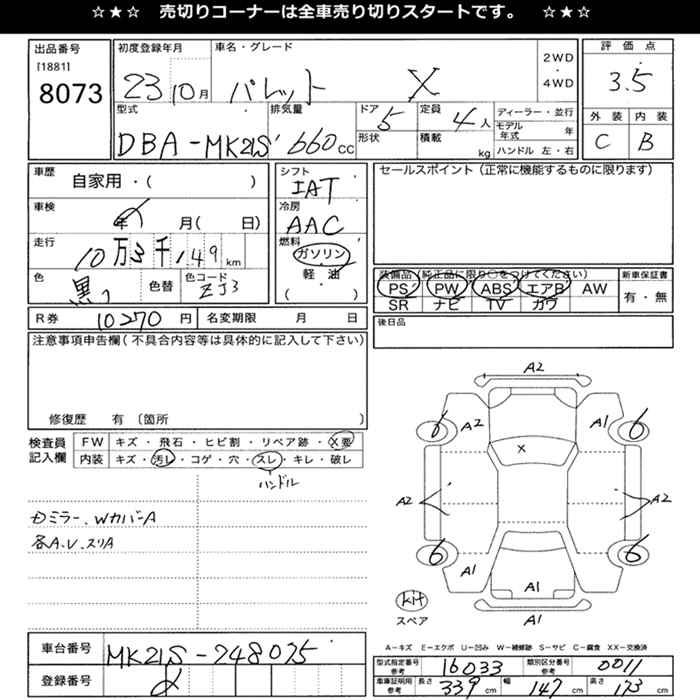 ☆★☆ 売切りコーナーは全車売り切りスタートです。 ☆★☆
出品番号
[1881]
8073
初度登録年月
23 10月
車名・グレード
パレット X
2WD
・
4WD
評価点
3.5
型式
DBA-MK21S
排気量
660cc
ドア
5
形状
定員
4人
積載
kg
ディーラー・並行
モデル年式 年
ハンドル 左・右
外装 内装
C B
車歴
自家用・( )
車検
年 月( 日)
走行
10万3千149km
色
黒
色替
色コード
ZJ3
シフト
IAT
冷房
AAC
燃料
ガソリン
軽油
( )
セールスポイント (正常に機能するものに限ります)
装備品(純正品に限り○をつけてください)
PS PW ABS エアB AW
SR ナビ TV カワ
新車保証書
有・無
R券 10270円 名変期限 月 日
後日品
注意事項申告欄(不具合内容等は具体的に記入して下さい)
修復歴 有 (箇所 )
検査員記入欄
FW キズ・飛石・ヒビ割・リペア跡・X要
内装 キズ・汚レ・コゲ・穴・スレ・キレ・破レ
ハンドル
ミラー、WカバーA
各A.U.スリA
A2
A2
A1
6
6
X
A2
A2
6
6
A1
A1
A1
kit
スペア
A-キズ E-エクボ U-凹み W-補修跡 S-サビ C-腐食 XX-交換済
車台番号 MK21S-748075
登録番号
型式指定番号 参考 16033 類別区分番号 参考 0011
車庫証明用 参考 長さ 339cm 幅 147cm 高さ 173cm